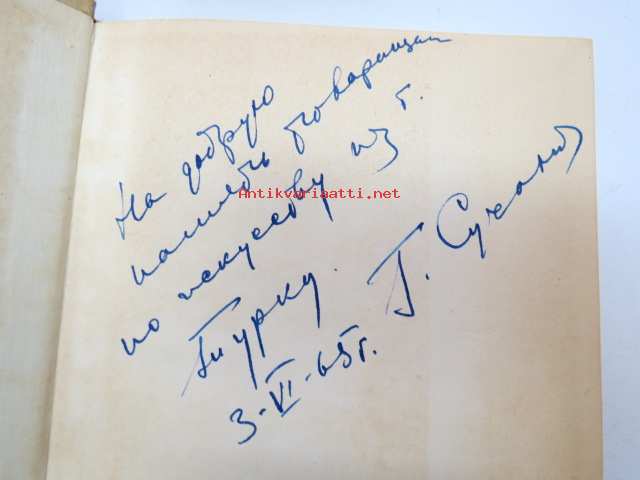 На добрую
память товарищам
по искусству из г.
Турку.
Г.
3-VI-65г.
Antikvariaatti.net